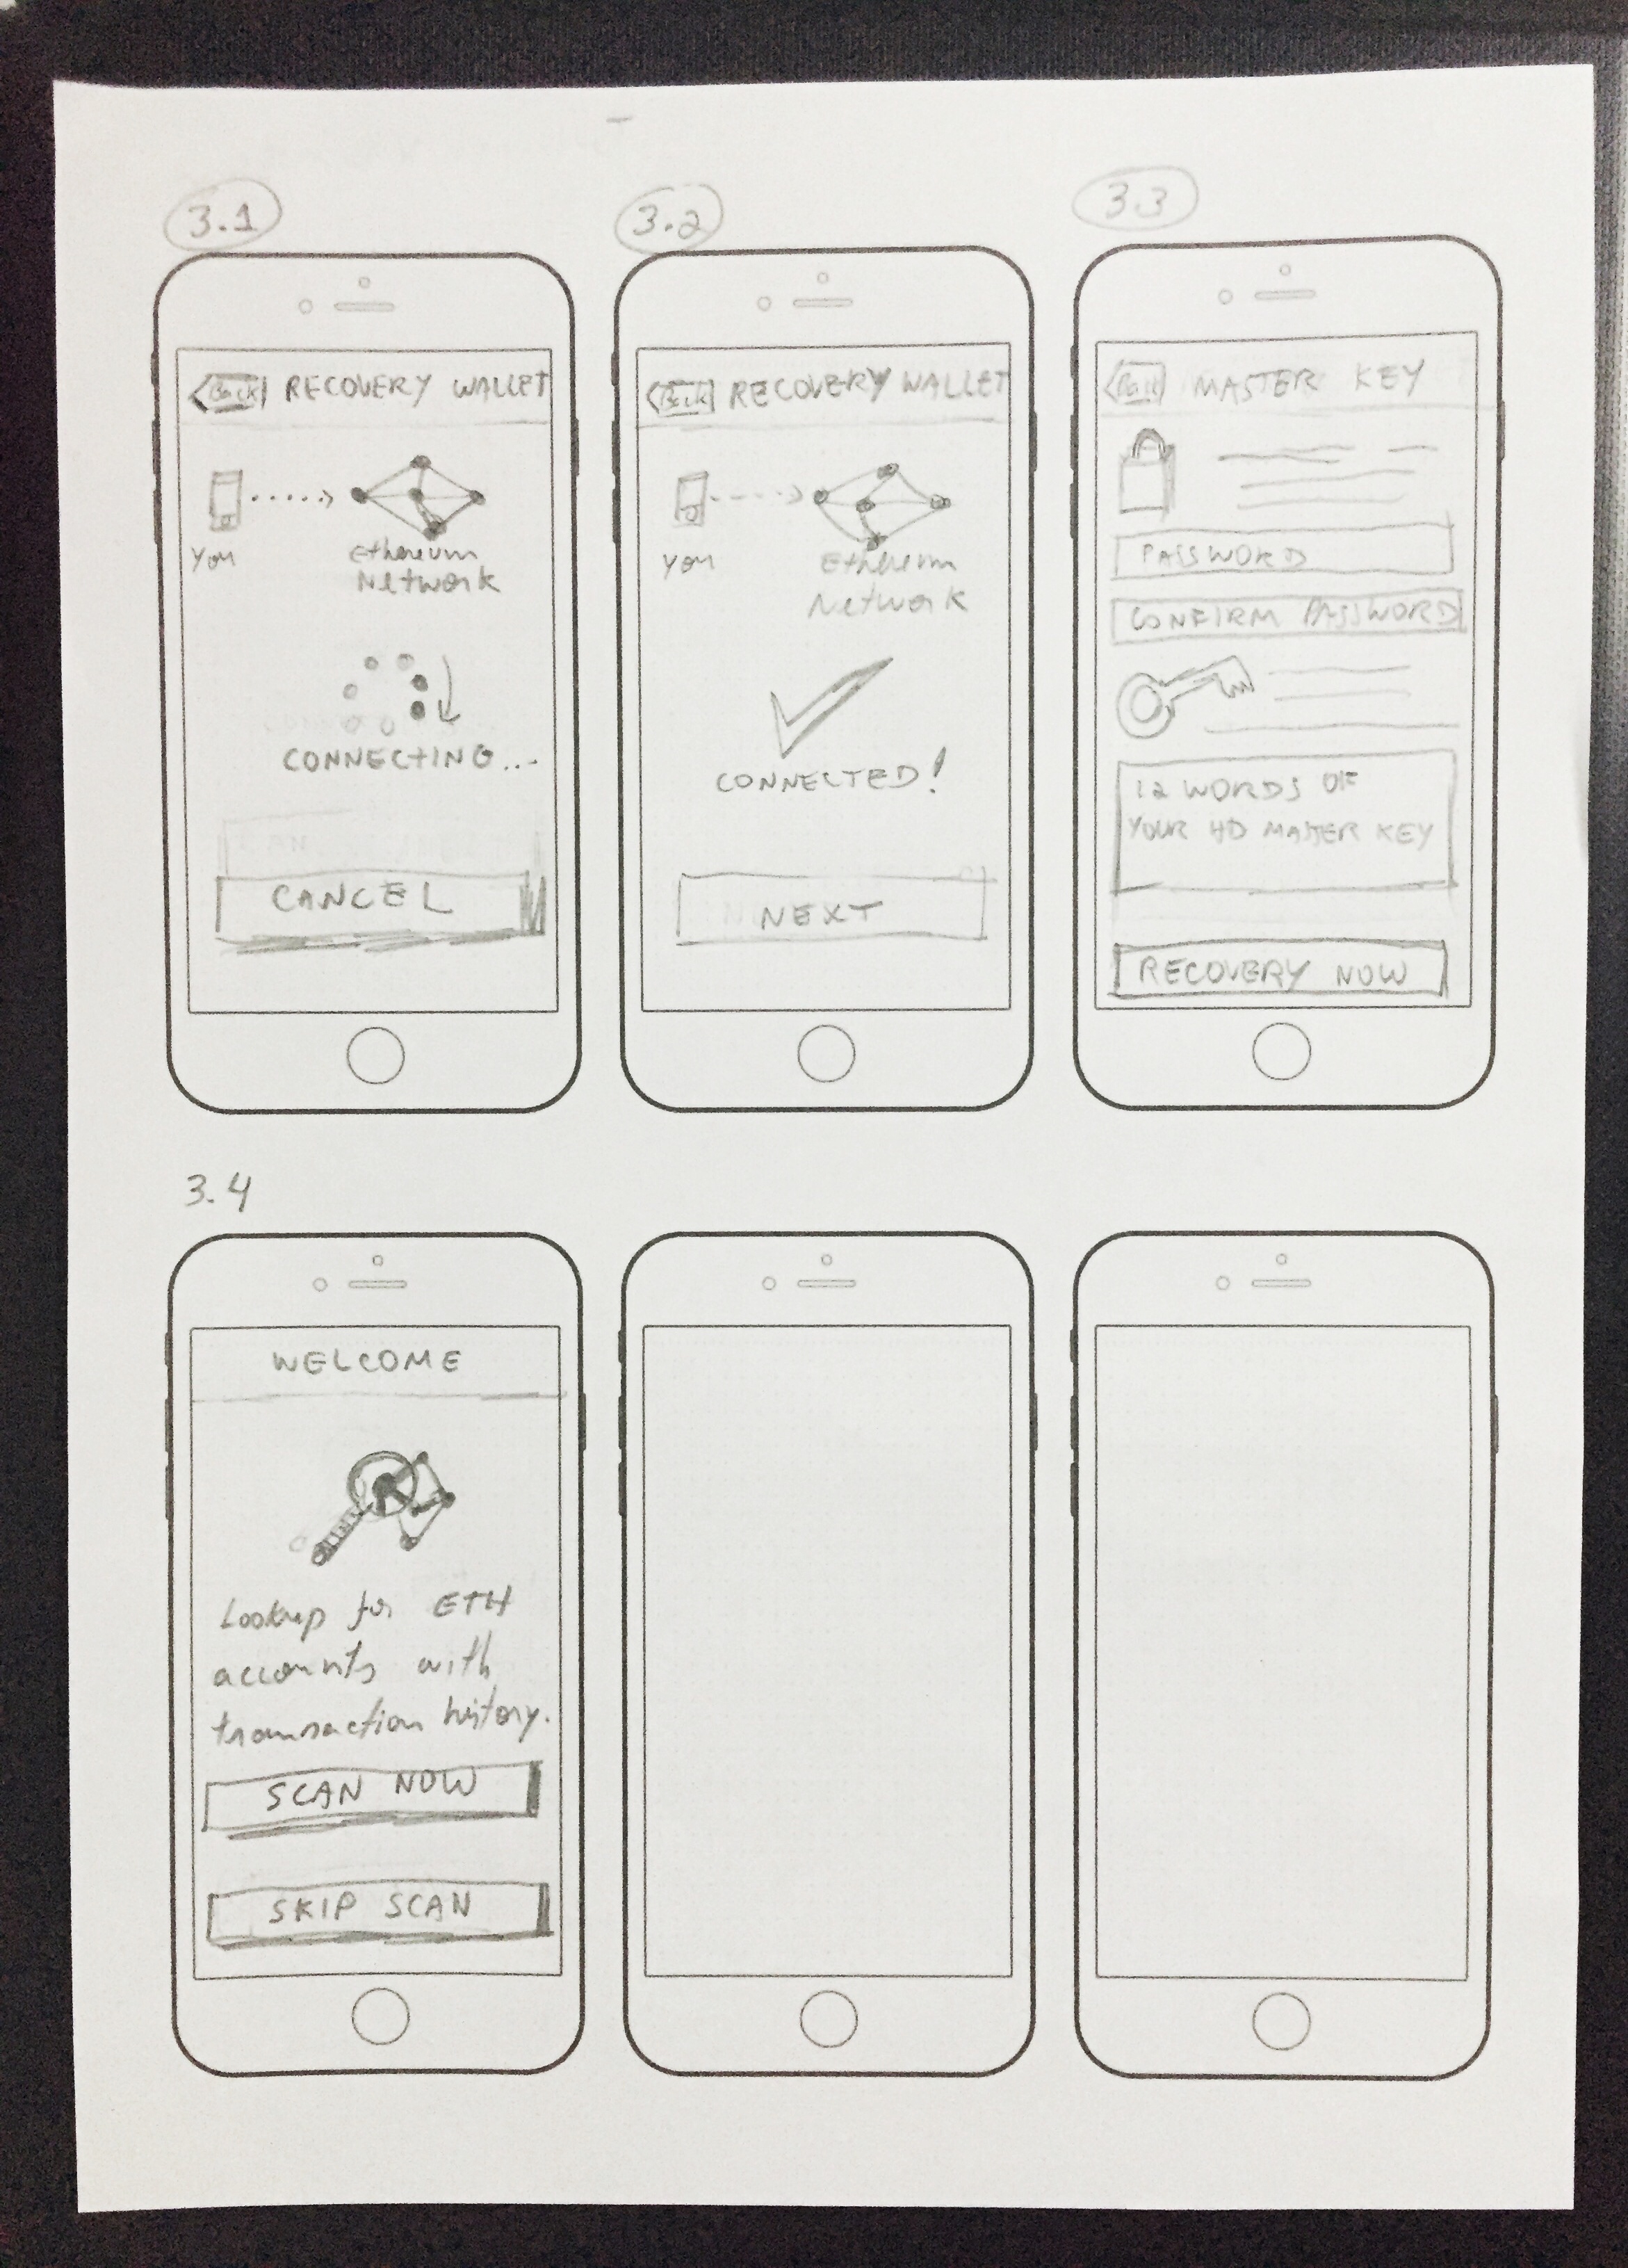 3.1
Back RECOVERY WALLET
You
Ethereum
Network
CONNECTING...
CANCEL
3.2
Back RECOVERY WALLET
You
Ethereum
Network
CONNECTED!
NEXT
3.3
Back MASTER KEY
PASSWORD
CONFIRM PASSWORD
12 WORDS OF
YOUR HD MASTER KEY
RECOVERY NOW
3.4
WELCOME
Lookup for ETH
accounts with
transaction history.
SCAN NOW
SKIP SCAN